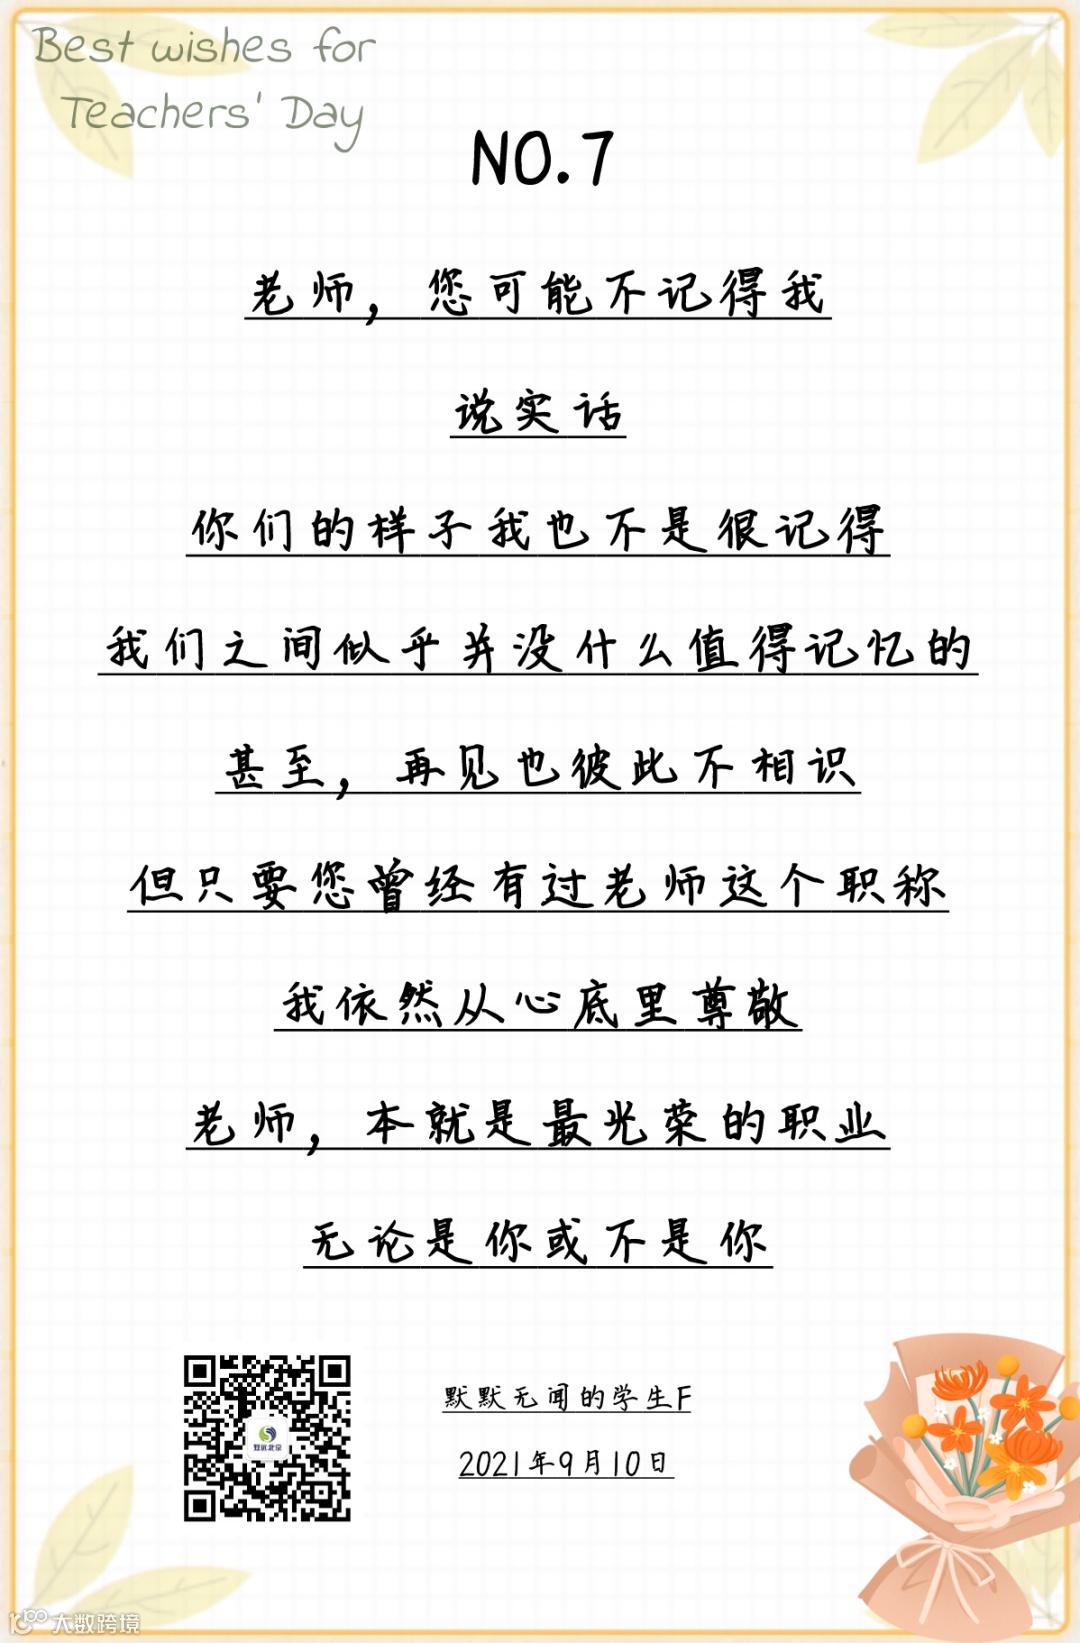 Best wishes for
Teachers' Day
NO.7
老师，您可能不记得我
说实话
你们的样子我也不是很记得
我们之间似乎并没什么值得记忆的
甚至，再见也彼此不相识
但只要您曾经有过老师这个职称
我依然从心底里尊敬
老师，本就是最光荣的职业
无论是你或不是你
默默无闻的学生F
2021年9月10日
大数跨境